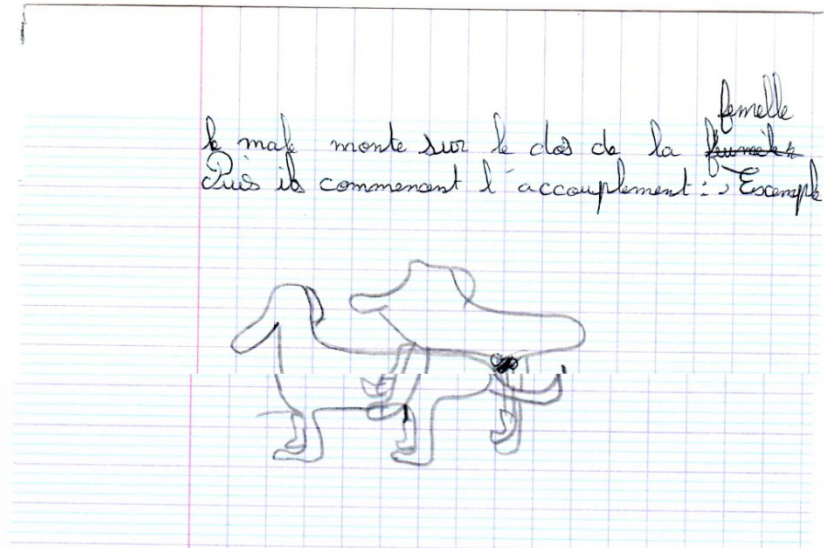 le male monte sur le dos de la femelle
Puis ils commencent l'accouplement : Exemple